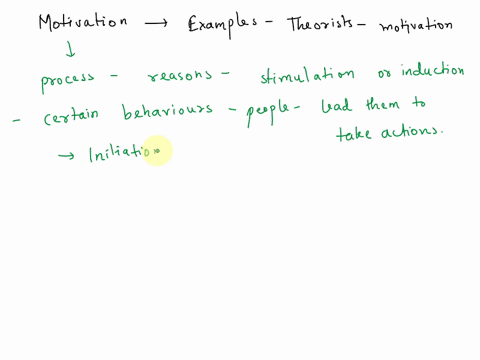 Motivation → Examples - Theorists - motivation
↓
process - reasons - stimulation or induction
- certain behaviours - people - lead them to
take actions.
→ Initiation